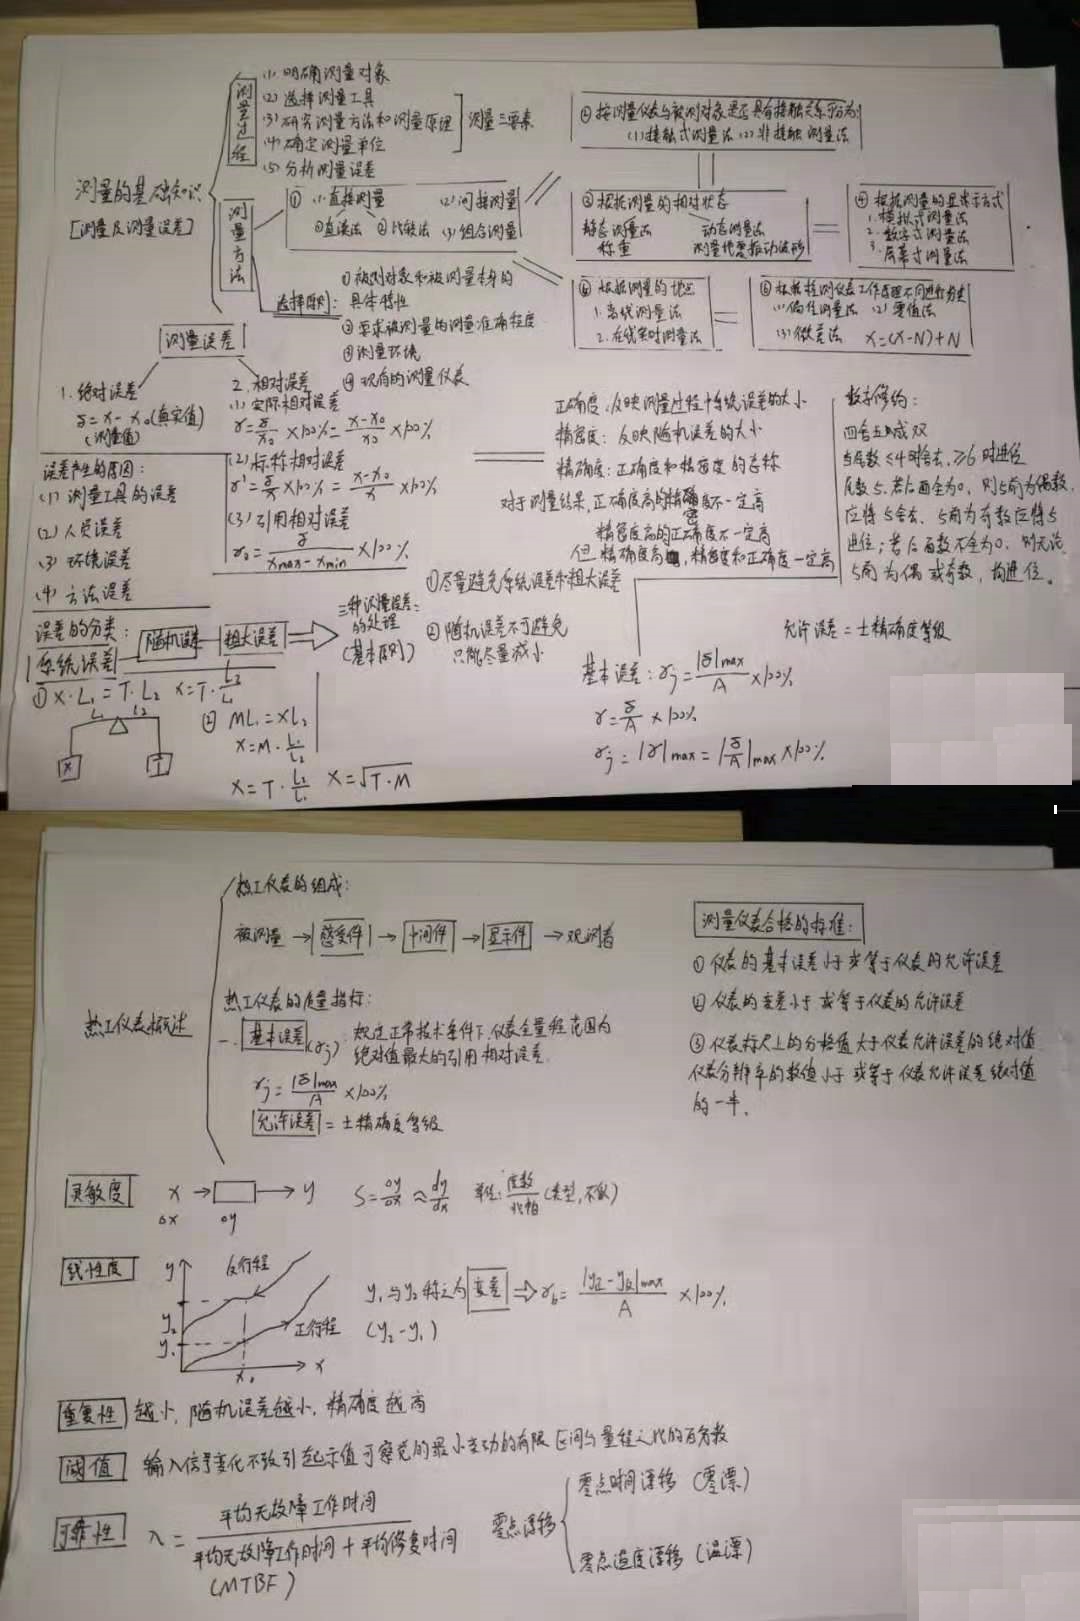 测量的基础知识
[测量及测量误差]
测量过程
(1) 明确测量对象
(2) 选择测量工具
(3) 研究测量方法和测量原理
(4) 确定测量单位
(5) 分析测量误差
测量三要素
测量方法
① (1) 直接测量 (2) 间接测量
①直读法 ②比较法 (3) 组合测量
②按测量仪表与被测对象是否具有接触关系可分为:
(1) 接触式测量法 (2) 非接触测量法
③根据测量的相对状态
静态测量法 动态测量法
称重 测量地震振动波形
④根据测量的显示方式
1. 模拟式测量法
2. 数字式测量法
3. 屏幕式测量法
⑥根据测量的地区
1. 离线测量法
2. 在线实时测量法
⑤根据检测仪表工作原理不同进行分类
(1) 偏位测量法 (2) 零值法
(3) 微差法 X=(X-N)+N
选择原则:
①被测对象和被测量本身的
具体特性
②要求被测量的测量准确程度
③测量环境
④现有的测量仪表
测量误差
1. 绝对误差
δ=x-x₀(真实值)
(测量值)
2. 相对误差
(1) 实际相对误差
γ=δ/x₀×100%=(x-x₀)/x₀×100%
(2) 标称相对误差
γ'=δ/x×100%=(x-x₀)/x×100%
(3) 引用相对误差
γ₀=δ/(xmax-xmin)×100%
误差产生的原因:
(1) 测量工具的误差
(2) 人员误差
(3) 环境误差
(4) 方法误差
误差的分类:
系统误差 随机误差 粗大误差
三种测量误差
的处理
(基本原则)
①尽量避免系统误差和粗大误差
②随机误差不可避免
只能尽量减小
正确度:反映测量过程中系统误差的大小
精密度:反映随机误差的大小
精确度:正确度和精密度的总称
对于测量结果,正确度高的精密度不一定高
精密度高的正确度不一定高
但 精确度高,精密度和正确度一定高
数字修约:
四舍五入成双
当尾数≤4时舍去,≥6时进位
尾数5,若后面全为0,则5前为偶数,
应将5舍去,5前为奇数应将5
进位;若后面数不全为0,则无论
5前为偶或奇数,均进位。
允许误差=±精确度等级
基本误差:γj=|δ|max/A×100%
γ=δ/A×100%
γj=|γ|max=|δ/A|max×100%
①X·L₁=T·L₂ X=T·L₂/L₁
L₁ L₂
X T
②ML₁=XL₂
X=M·L₁/L₂
X=T·L₂/L₁ X=√T·M
热工仪表概述
热工仪表的组成:
被测量→感受件→中间件→显示件→观测者
热工仪表的质量指标:
一.基本误差(γj):规定正常技术条件下,仪表全量程范围内
绝对值最大的引用相对误差.
γj=|δ|max/A×100%
允许误差=±精确度等级
测量仪表合格的标准:
①仪表的基本误差小于或等于仪表的允许误差
②仪表的变差小于或等于仪表的允许误差
③仪表标尺上的分格值大于仪表允许误差的绝对值
仪表分辨率的数值小于或等于仪表允许误差绝对值
的一半.
灵敏度 x→□→y S=Δy/Δx≈dy/dx 单位:
Δx Δy
线性度 y 反行程
y₂ y₁ 正行程
x₀ x
y₁与y₂称之为变差⇒γb=|y正-y反|max/A×100%
(y₂-y₁)
重复性 越小,随机误差越小,精确度越高
阈值 输入信号变化不致引起示值可察觉的最小变动的有限区间与量程之比的百分数
可靠性 λ=平均无故障工作时间/(平均无故障工作时间+平均修复时间)
(MTBF)
零点漂移
零点时间漂移(零漂)
零点温度漂移(温漂)